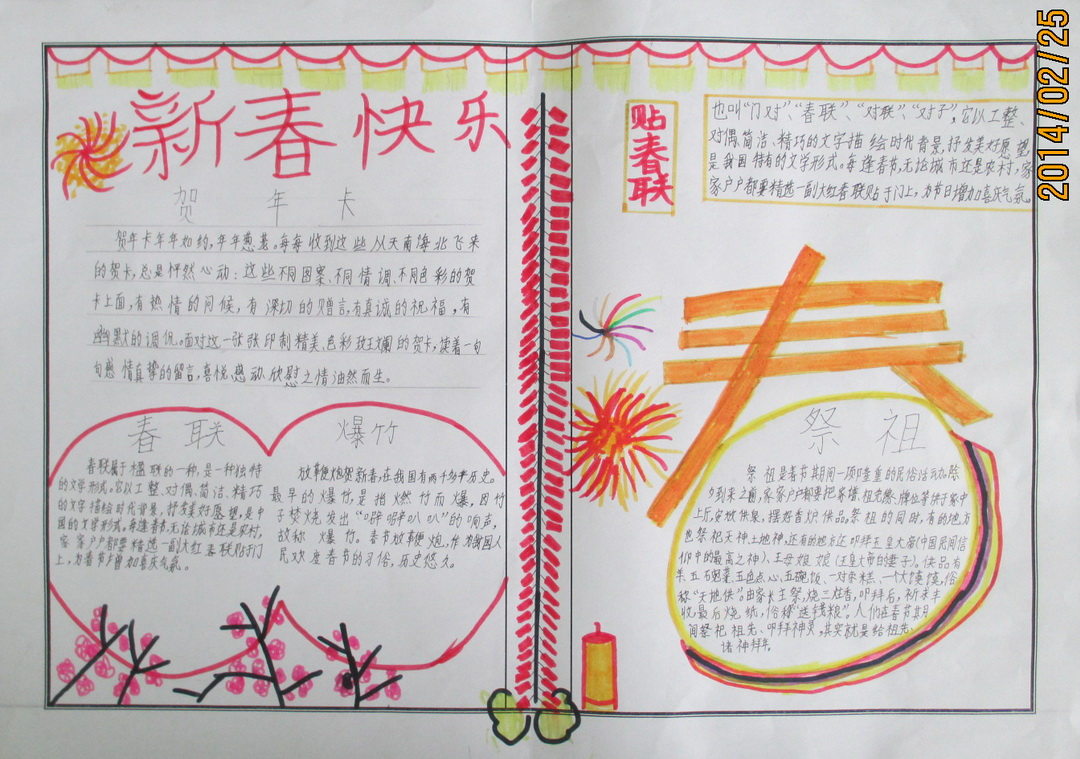 新春快乐
贺年卡
贺年卡年年如约,年年惠芳。每每收到这些从天南海北飞来
的贺卡,总是怦然心动:这些不同图案、不同情调、不同色彩的贺
卡上面,有热情的问候,有深切的赠言,有真诚的祝福,有
幽默的调侃。面对这一张张印制精美、色彩斑斓的贺卡,读着一句
句感情真挚的留言,喜悦感动欣慰之情油然而生。
春联
春联属于楹联的一种,是一种独特
的文学形式。它以工整、对偶、简洁、精巧
的文字描绘时代背景,抒发美好愿望,是中
国的文学形式,每逢春节,无论城市还是农村,
家家户户都要精选一副大红春联贴于门
上,为春节增加喜庆气氛。
爆竹
放鞭炮贺新春,在我国有两千多年历史。
最早的爆竹,是指燃竹而爆,因竹
子焚烧发出“噼噼叭叭”的响声,
故称爆竹。春节放鞭炮,作为我国人
民欢度春节的习俗,历史悠久。
贴春联
也叫“门对”、“春联”、“对联”、“对子”,它以工整、
对偶、简洁、精巧的文字描绘时代背景,抒发美好愿望,
是我国特有的文学形式。每逢春节,无论城市还是农村,家
家户户都要精选一副大红春联贴于门上,为节日增加喜庆气氛。
春
祭祖
祭祖是春节期间一项隆重的民俗活动。除
夕到来之前,家家户户都要把家谱、祖先像、牌位等供于家中
上厅,安放供桌,摆好香炉、供品。祭祖的同时,有的地方
也祭祀天神、土地神,还有的地方还叩拜玉皇大帝(中国民间信
仰中的最高之神)、王母娘娘(玉皇大帝的妻子)。供品有
羊、五碗菜、五色点心、五碗饭、一对枣糕、一个大馍馍,俗
称“天地供”。由家长主祭,烧三炷香,叩拜后,祈求丰
收,最后烧纸,俗称“送钱粮”。人们在春节其月
间祭祀祖先、叩拜神灵,其实就是给祖先、
诸神拜年。
2014/02/25